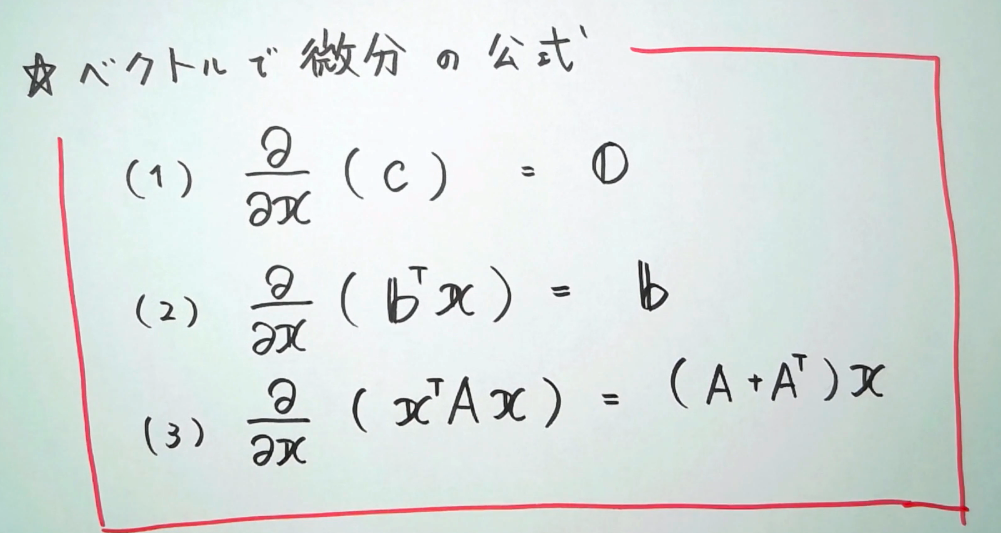 ☆ ベクトルで 微分 の 公式
(1) ∂/∂𝕩 ( c ) = 𝟘
(2) ∂/∂𝕩 ( 𝕓ᵀ𝕩 ) = 𝕓
(3) ∂/∂𝕩 ( 𝕩ᵀA𝕩 ) = (A+Aᵀ)𝕩